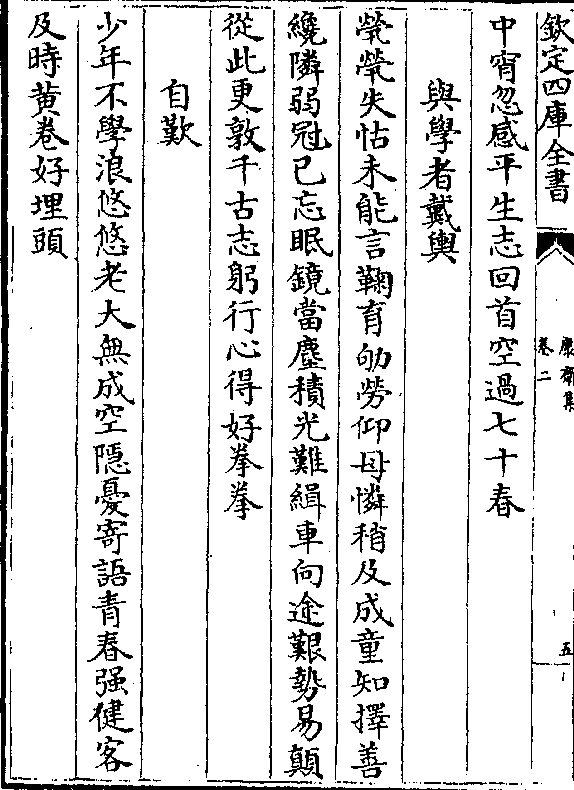 欽定四庫全書
康齋集
卷二
五
中宵忽感平生志回首空過七十春
與學者戴輿
煢煢失怙未能言鞠育劬勞仰母憐稍及成童知擇善
纔隣弱冠已忘眠鏡當塵積光難緝車向途艱勢易顛
從此更敦千古志躬行心得好拳拳
自歎
少年不學浪悠悠老大無成空隱憂寄語青春强健客
及時黄卷好埋頭